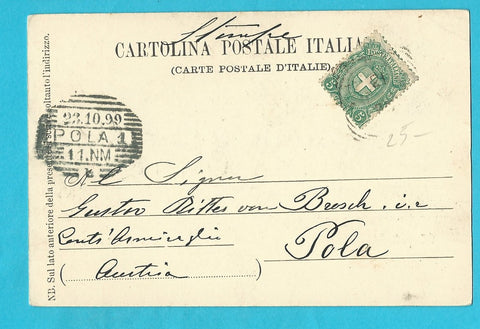 Stampe
CARTOLINA POSTALE ITALIANA
(CARTE POSTALE D'ITALIE)
5
5
25-
23.10.99
POLA 1
11.NM
Al Signor
Gustav Ritter von
Pola
(Austria)
NB. Sul lato anteriore della presente si scrive soltanto l'indirizzo.